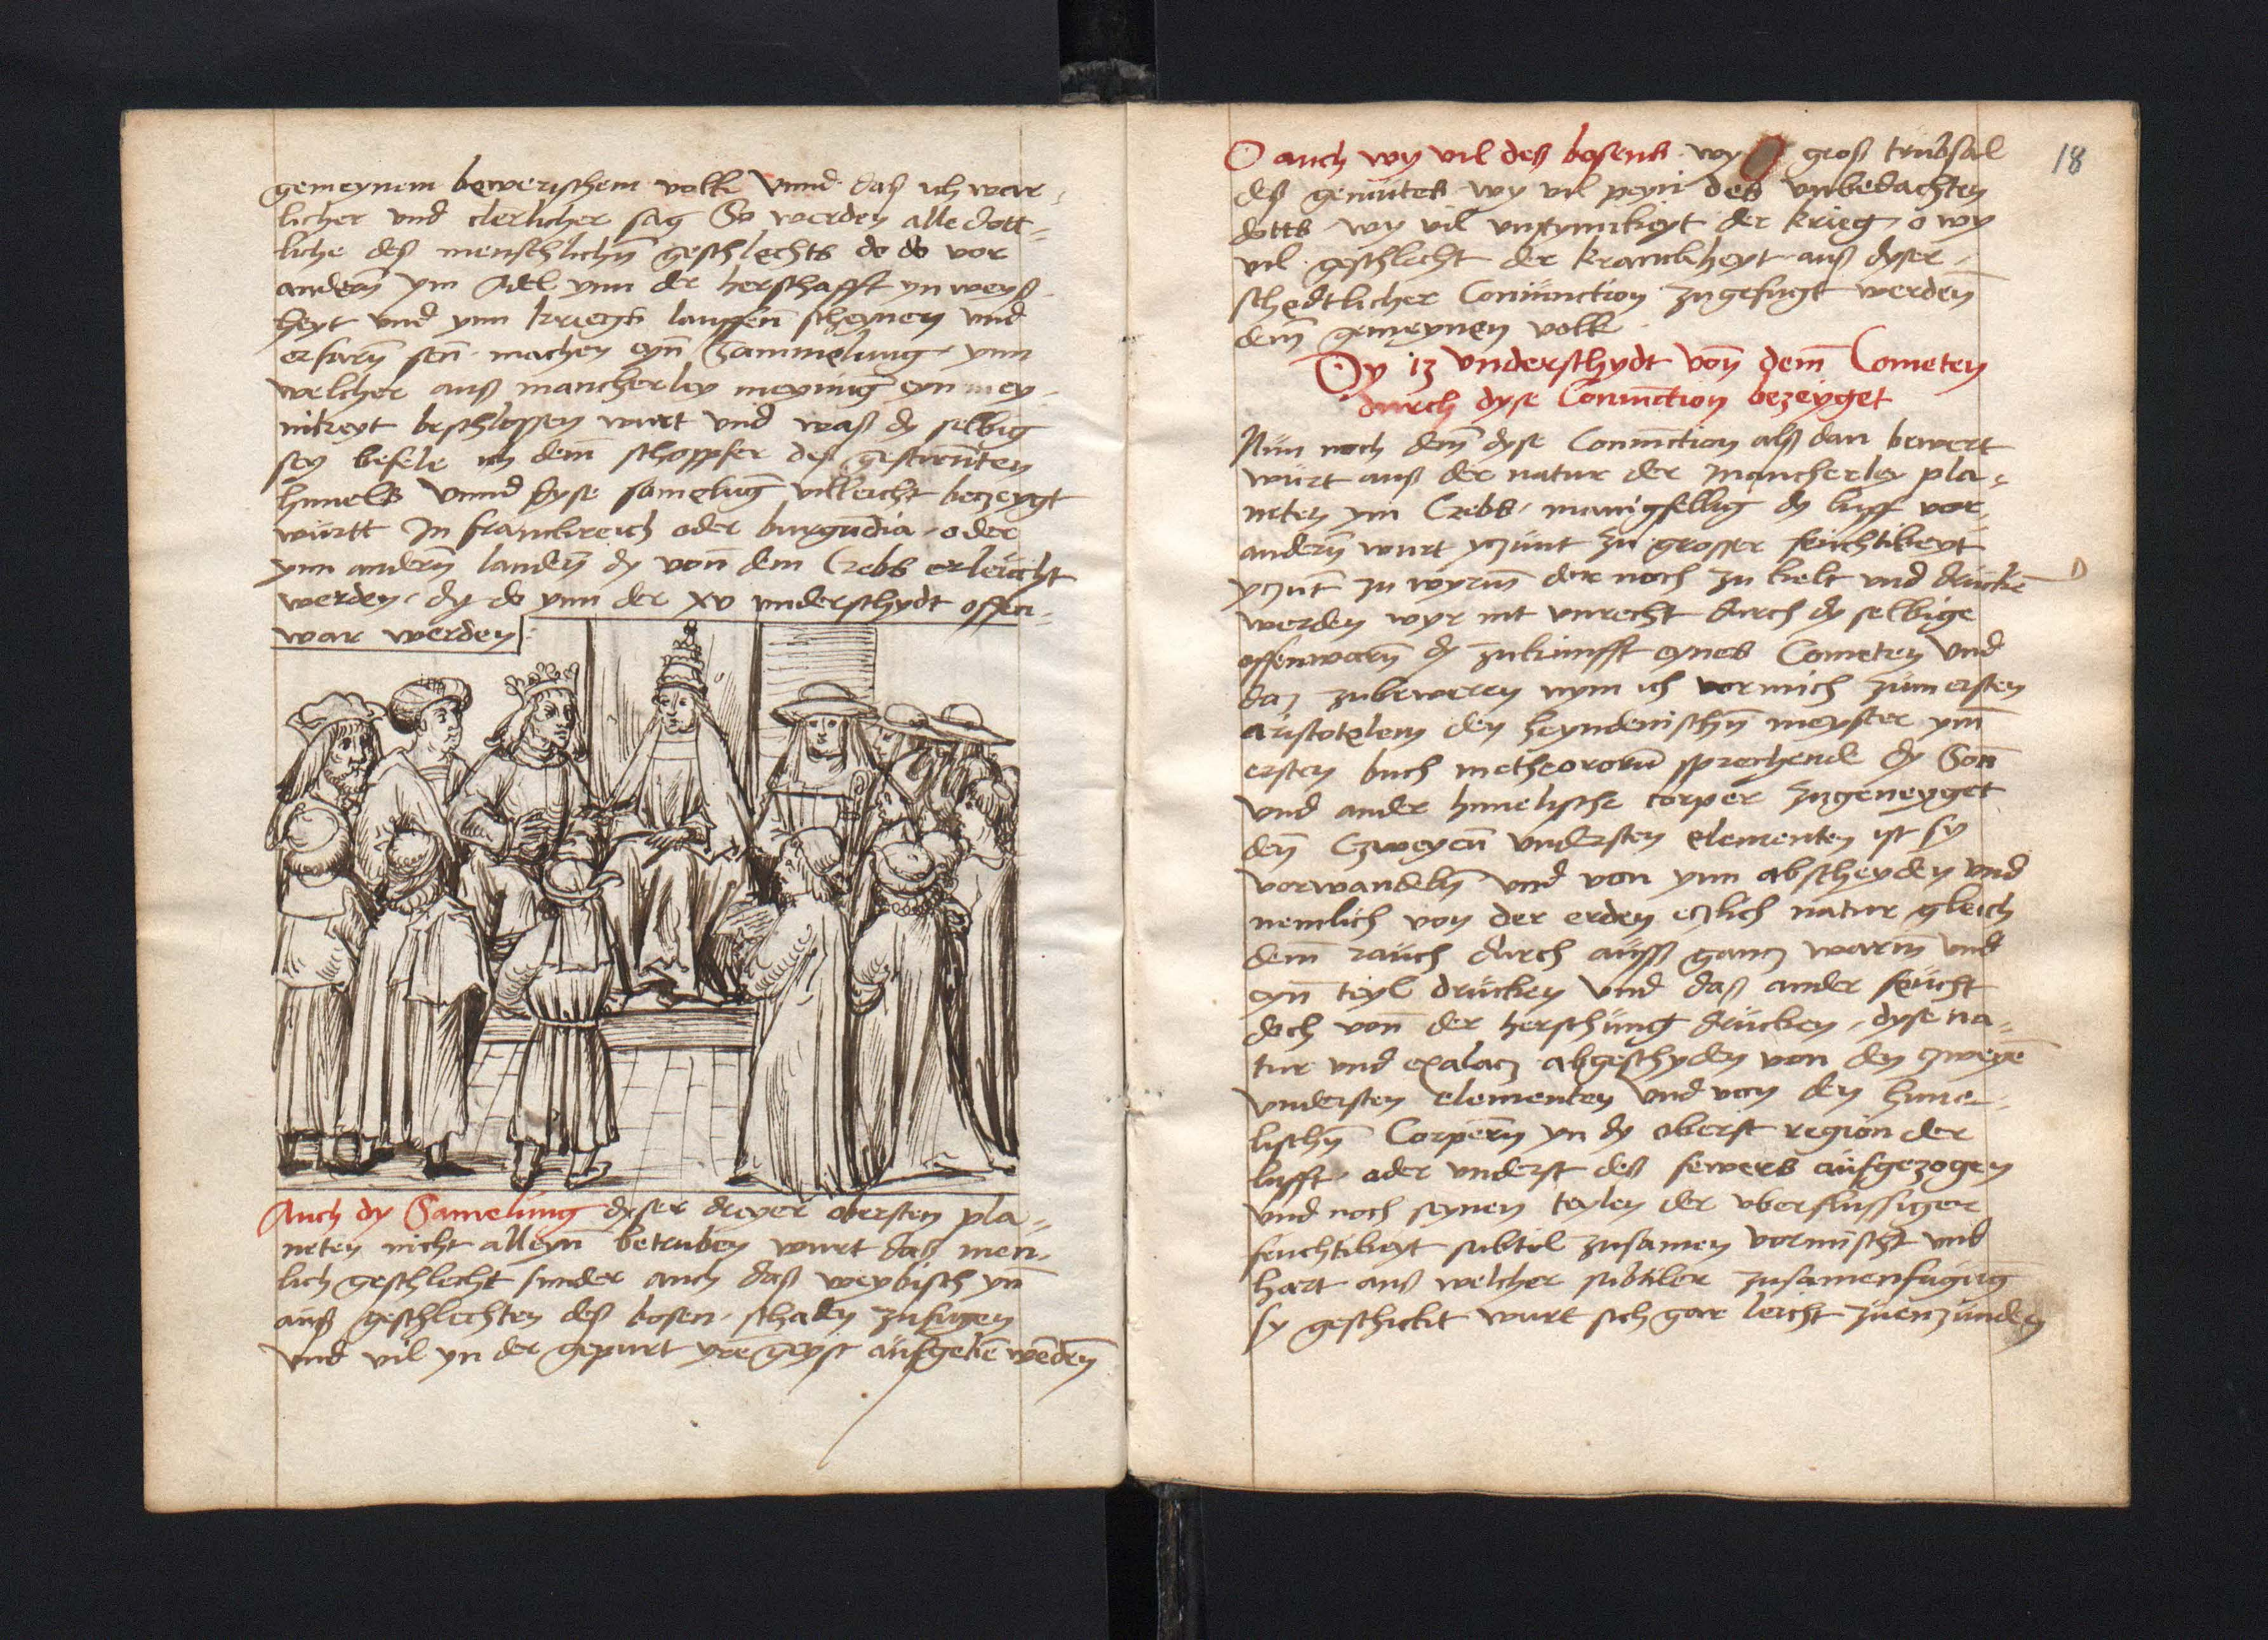 gemeynem bewerischem volk Vnnd daß ich war⸗
licher vnd clerlicher sag So werden alle dott⸗
liche deß menschlichn̄ geschlechts do do vor
andern̄ ym Adel ynn der herschafft yn weyß⸗
heyt vnd ynn kriegß lauffen̄ scheynen vnd
erfarn̄ sen̄ machen eyn̄ Sammelung ynn
welcher auß mancherley meynung eyn mey⸗
nikeyt beschlossen wurt vnd waß dy selbig
sey befele ich dem̄ schoppfer deß gestirnten
himels Vnnd dyse sameluḡ villeicht beczeygt
württ In franckreich oder burgūdia oder
ynn andern̄ landen̄ dy von̄ dem Crebs erleücht
werden dy do ynn der xv vnderschydt offen⸗
war werden
Auch dy Samelung dyser dreyer obersten pla⸗
neten nicht alleyn̄ betruben wurt daß men⸗
lich geschlecht sunder auch daß weybisch yn̄
auß geschlechten deß bosen schaden zufugen
vnd vil yn der gepurt yre geyst aufgebē werden̄
18
O auch wy vil deß bosens wy O groß trübsal
deß gemütes wy vil peyn des vnbedachten
dotts wy vil vnsynnikeyt der krieg o wy
vil geschlecht der kranckheyt auß dyser
schedtlicher Coniunction zugefugt werden̄
dem̄ gemeynen volk
Dy 13 vnderschydt von̄ dem̄ Cometen
durch dyse Coniunction bezeyget
Nün noch dem̄ dyse Coniunction alß dan bewert
würt auß der natur der mancherley pla⸗
neten ym Crebs manigfellig dy luff vor
andern̄ wurt yczünt zu grosser feüchtikeyt
yczūt zu wyrm̄ dar noch zu kelt vnd drückē
werden wyr nit vnrecht durch dy selbige
offenwarn̄ dy zukunfft eynes Cometen vnd
daz zubeweren nym ich vor mich züm ersten
aristotelem den heyndenischn̄ meyster ym̄
ersten buch metheororū sprechende dy Son̄
vnd ander himelische corper zugeneyget
den̄ Czweyen̄ vndersten elementen ist sy
vorwandeln̄ vnd von ynn abscheyden vnd
nemlich von der erden eczlich natur gleich
dem̄ rauch durch auß gancz warm̄ vnd
eyn̄ teyl drücken vnd daß ander feücht
doch von̄ der herschüng drücken dyse na⸗
tur vnd exalacz abgeschyden von den zweyē
vndersten elementen vnd von den hime⸗
lischn̄ Corpern̄ yn dy oberst region der
lufft oder vnderst deß fewers aufgezogen
vnd noch seynen teylen der vberflussiger
feuchtikeyt subtil zusamen vormischt vnd
hart auß welcher subtiler zusamenfugūg
sy geschickt wurt sich gar leicht zuenzunden